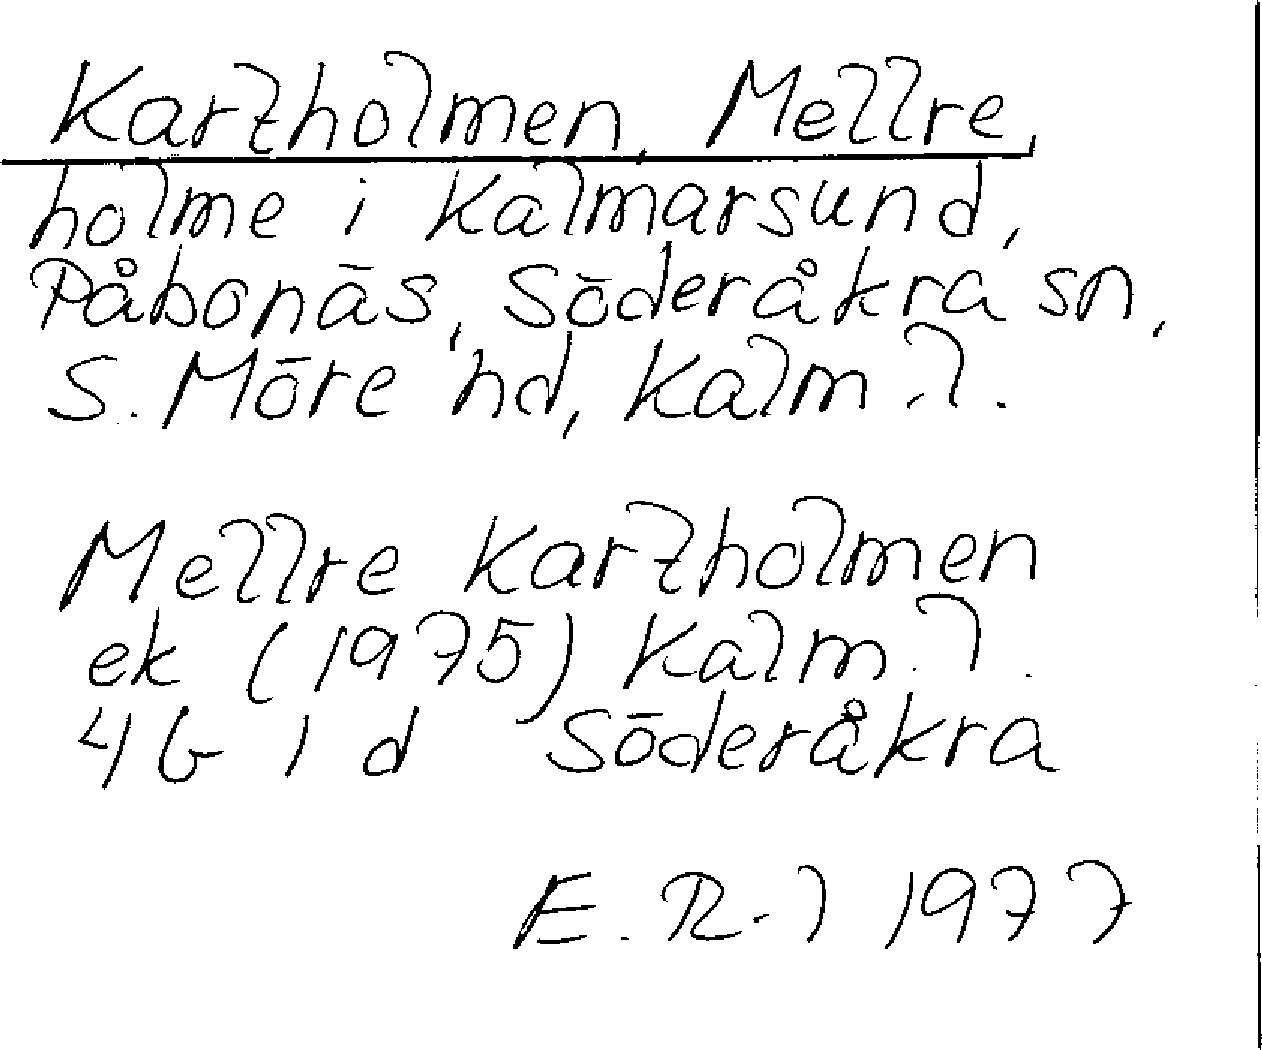 Karzholmen, Mellre,
holme i Kalmarsund,
Påbonäs, Söderåkra sn,
S. Möre hd, Kalm. l.
Mellre Karzholmen
ek (1975) Kalm. l.
4G 1 d Söderåkra
E. R-l 1977